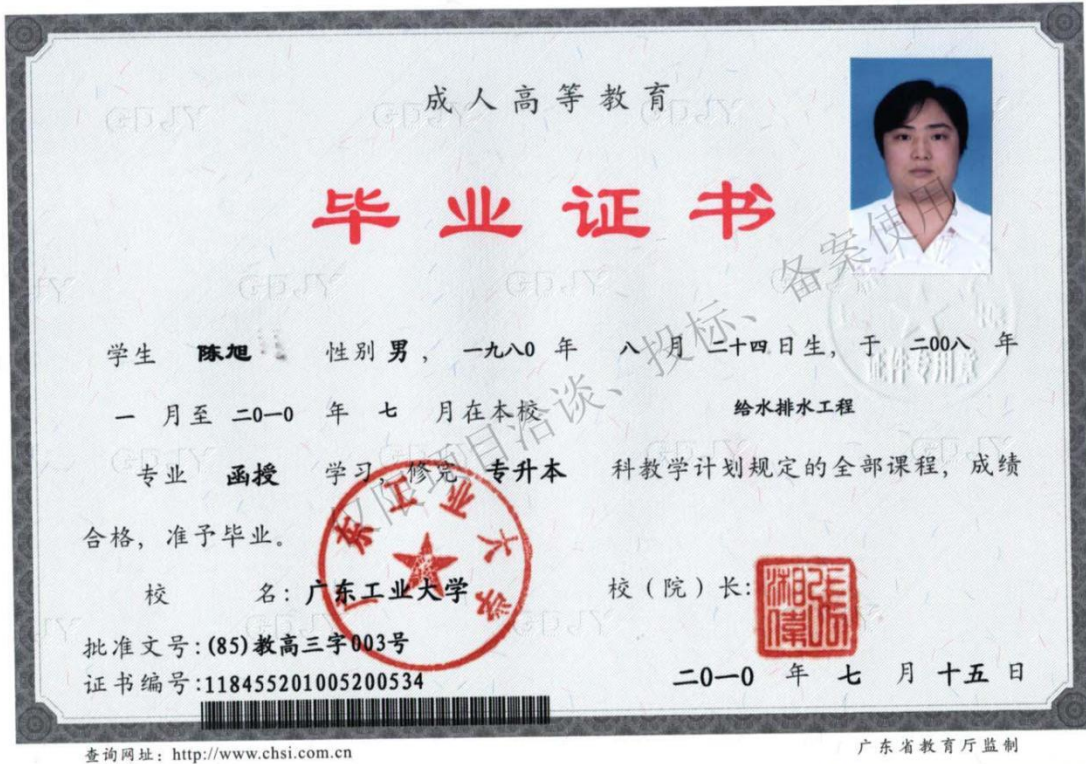 成人高等教育
毕业证书
学生 陈旭 性别 男， 一九八0 年 八 月 二十四 日生，于 二00八 年
一 月至 二0一0 年 七 月在本校 给水排水工程
专业 函授 学习，修完 专升本 科教学计划规定的全部课程，成绩
合格，准予毕业。
校 名：广东工业大学
校（院）长：
张湘伟
批准文号：(85)教高三字003号
证书编号：118455201005200534
二0一0 年 七 月 十五 日
查询网址：http://www.chsi.com.cn
广东省教育厅监制
仅限项目洽谈、投标、备案使用
广东工业大学
证件专用章
GDJY